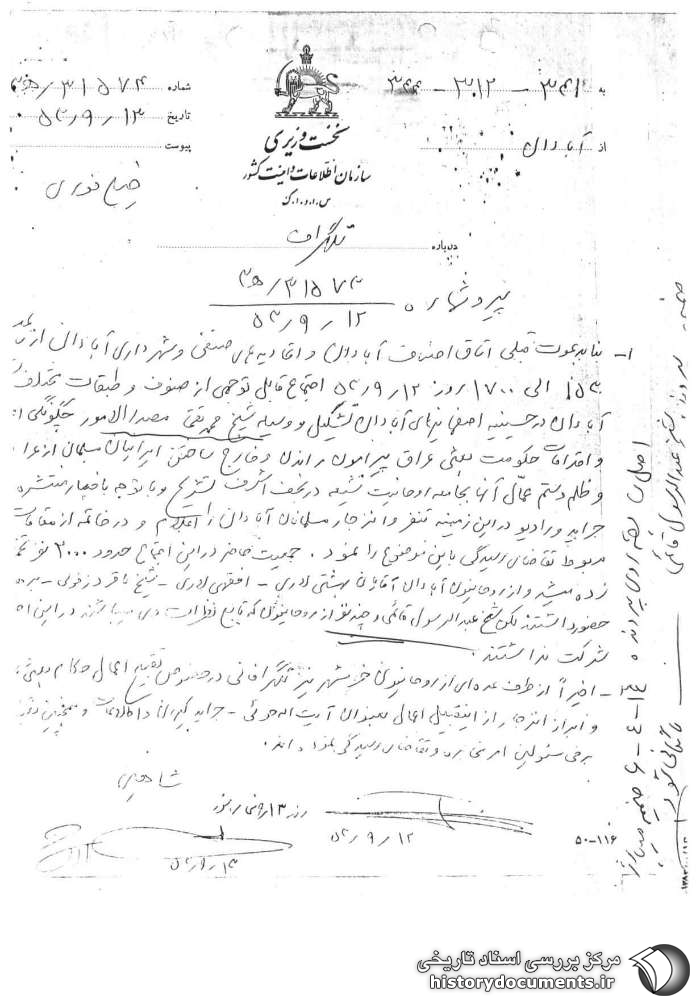 به ۳۴۱ - ۳۱۲ - ۳۴۴
شماره ۳۱۵۷۴/ﻫ۳
از آبادان
تاریخ ۵۴/۹/۱۳
پیوست
نخست وزیری
سازمان اطلاعات و امنیت کشور
س.ا.و.ا.ک
خیلی فوری
درباره تلگراف
پیرو شماره ۳۱۵۷۴/ﻫ۳
۵۴/۹/۱۲
۱- بنا بدعوت قبلی اتاق اصناف آبادان و اتحادیه های صنفی و شهرداری آبادان از
الی ۱۷۰۰ روز ۵۴/۹/۱۲ اجتماع قابل توجهی از صنوف و طبقات مختلف
آبادان در حسینیه اصفهانیهای آبادان تشکیل و وسیله شیخ محمد تقی مصدرالامور چگونگی
و اقدامات حکومت بعثی عراق پیرامون راندن و خارج ساختن ایرانیان مسلمان از عراق
و ظلم و ستم عمال آنها بجامعه روحانیت شیعه در نجف اشرف تشریح و با توجه باخبار منتشره
جراید و رادیو در این زمینه تنفر و انزجار مسلمانان آبادان را اعلام و در خاتمه از مقامات
مربوطه تقاضای رسیدگی باین موضوع را نمود. جمعیت حاضر در این اجتماع حدود ۳۰۰۰ نفر
زده میشد و از روحانیون آبادان آقایان بهشتی لاری - افقهی لاری - شیخ باقر دزفولی -
حضور داشتند لکن شیخ عبدالرسول قائمی و چند نفر از روحانیون که تابع نظرات وی میباشند در این
شرکت نداشتند.
- اخیراً از طرف عده ای از روحانیون خرمشهر نیز تلگرافاتی در خصوص تقبیح اعمال حکام بعثی
و ابراز انزجار از اینقبیل اعمال بعنوان آیت اله خوئی - جراید کیهان و اطلاعات و همچنین
برخی مسئولین امر مخابره و تقاضای رسیدگی نموده اند.
شاهین
روز ۱۳
۵۴/۹/۱۲
۵۴/۹/۱۳
۵۰-۱۱۶
ضمیمه پرونده شیخ عبدالرسول قائمی
اصل در پرونده ۱۳-۴-۶ ضمیمه
بایگانی شود
مرکز بررسی اسناد تاریخی
historydocuments.ir